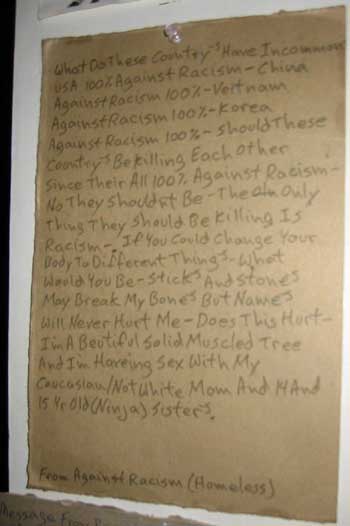 What Do These Country-s Have Incommon
USA 100% Against Racism - China
Against Racism 100% - Veitnam
Against Racism 100% - Korea
Against Racism 100% - Should These
Country-s Be Killing Each Other
Since Their All 100% Against Racism -
No They Shouldnt Be - The Only
Thing They Should Be Killing Is
Racism -, If You Could Change Your
Body To Different Things - What
Would You Be - Sticks And Stones
May Break My Bones But Names
Will Never Hurt Me - Does This Hurt -
I'm A Beutiful Solid Muscled Tree
And I'm Haveing Sex With My
Caucasian/Not White Mom And 14 And
15 Yr Old (Ninja) Sisters.
From Against Racism (Homeless)
Message From